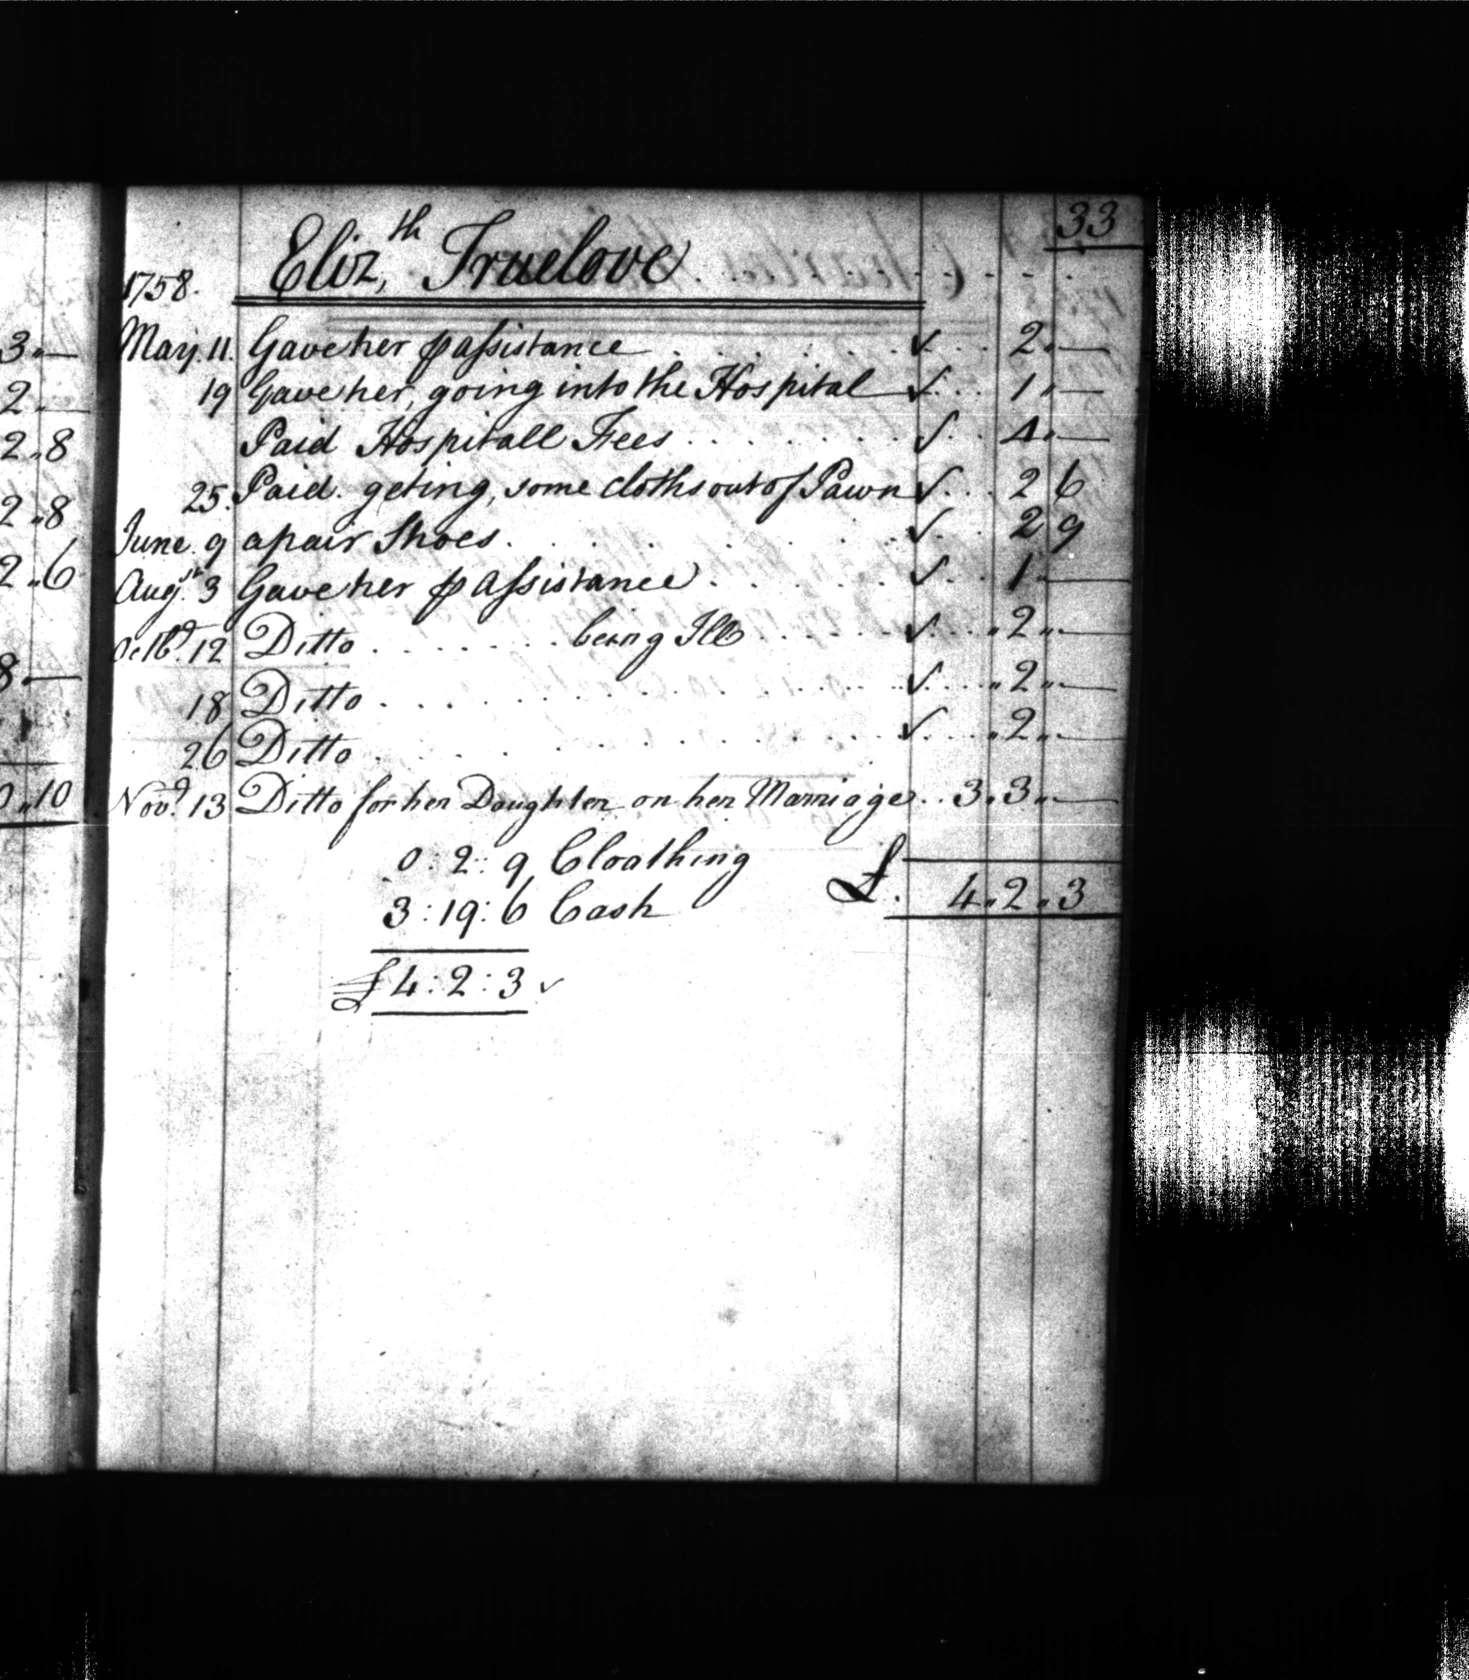 3 „ —
2 „ —
2 „ 8
2 „ 8
2 „ 6
8 „ —
0 „ 10
33
1758. Eliz,th Truelove . . . . . . . .
May. 11. Gave her ꝑ assistance . . . . . . . ✓ . . . 2 „ —
19 Gave her, going into the Hospital ✓ . . . 1 „ —
Paid Hospitall Fees . . . . . . . . ✓ . . 4 „ —
25. Paid. geting, some cloths out of Pawn ✓ . . . 2 6
June. 9 a pair Shoes . . . . . . . . ✓ . . 2 9
Augst. 3 Gave her ꝑ assistance . . . . . . ✓ . . . 1 „ —
Octbr. 12 Ditto . . . . . . . being Ill . . . . . ✓ . . . „ 2 „ —
18 Ditto . . . . . . . . . . . . ✓ . . . . „ 2 „ —
26 Ditto . . . . . . . . . . . . ✓ . . . . „ 2 „ —
Novr. 13 Ditto for her Daughter on her Marriage . . 3 „ 3 „ —
0 : 2 : 9 Cloathing
£. 4 „ 2 „ 3
3 : 19 : 6 Cash
£ 4 : 2 : 3 ✓